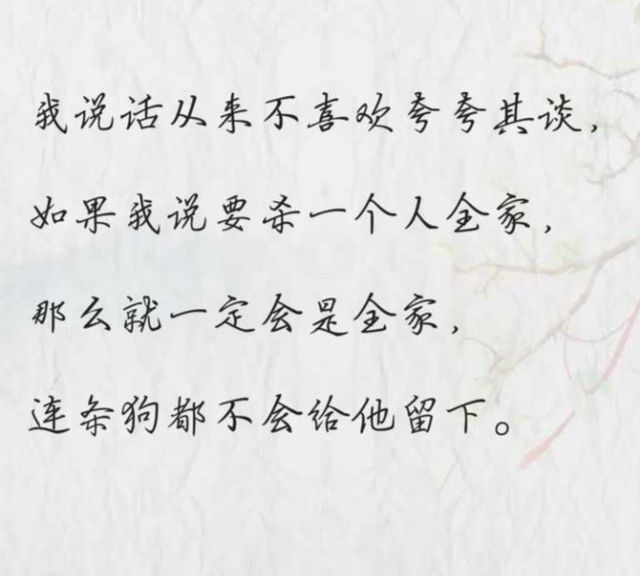 我说话从来不喜欢夸夸其谈,
如果我说要杀一个人全家,
那么就一定会是全家,
连条狗都不会给他留下。